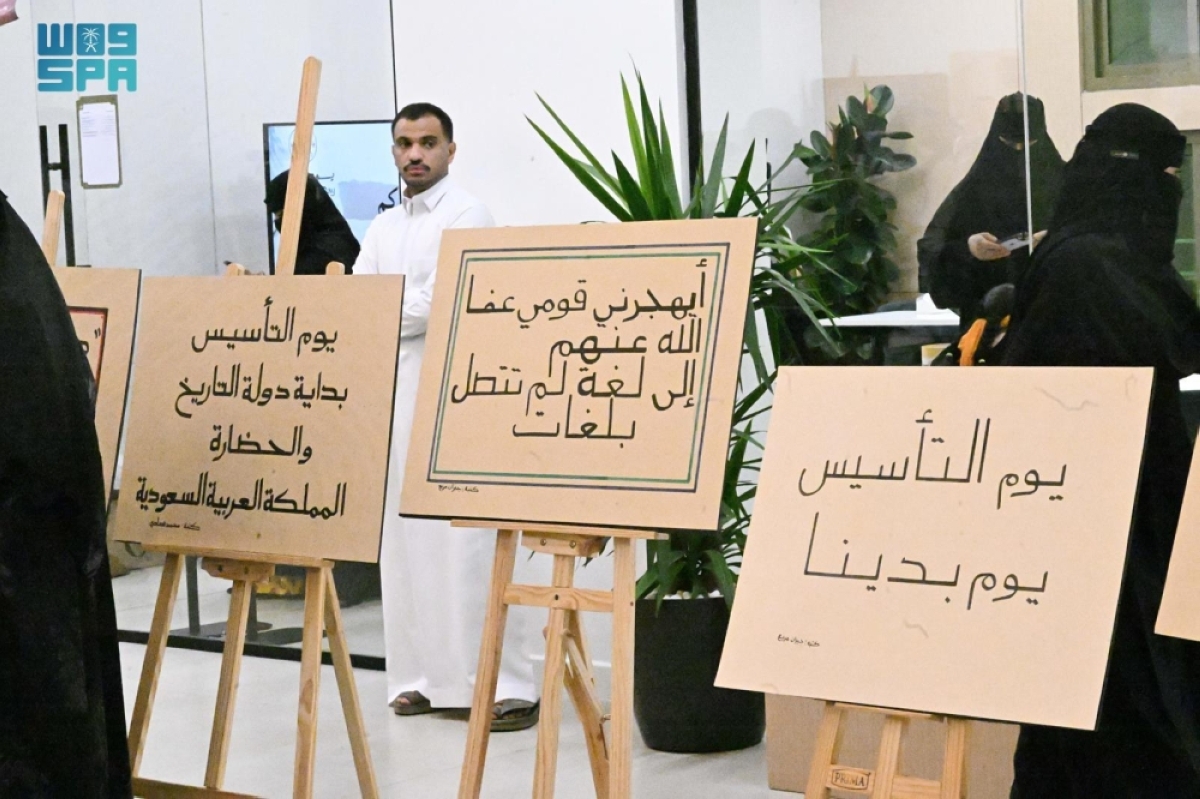 واس
SPA
أيهجرني قومي عفا
الله عنهم
إلى لغة لم تتصل
بلغات
يوم التأسيس
بداية دولة التاريخ
والحضارة
المملكة العربية السعودية
يوم التأسيس
يوم بدينا
PRIMA